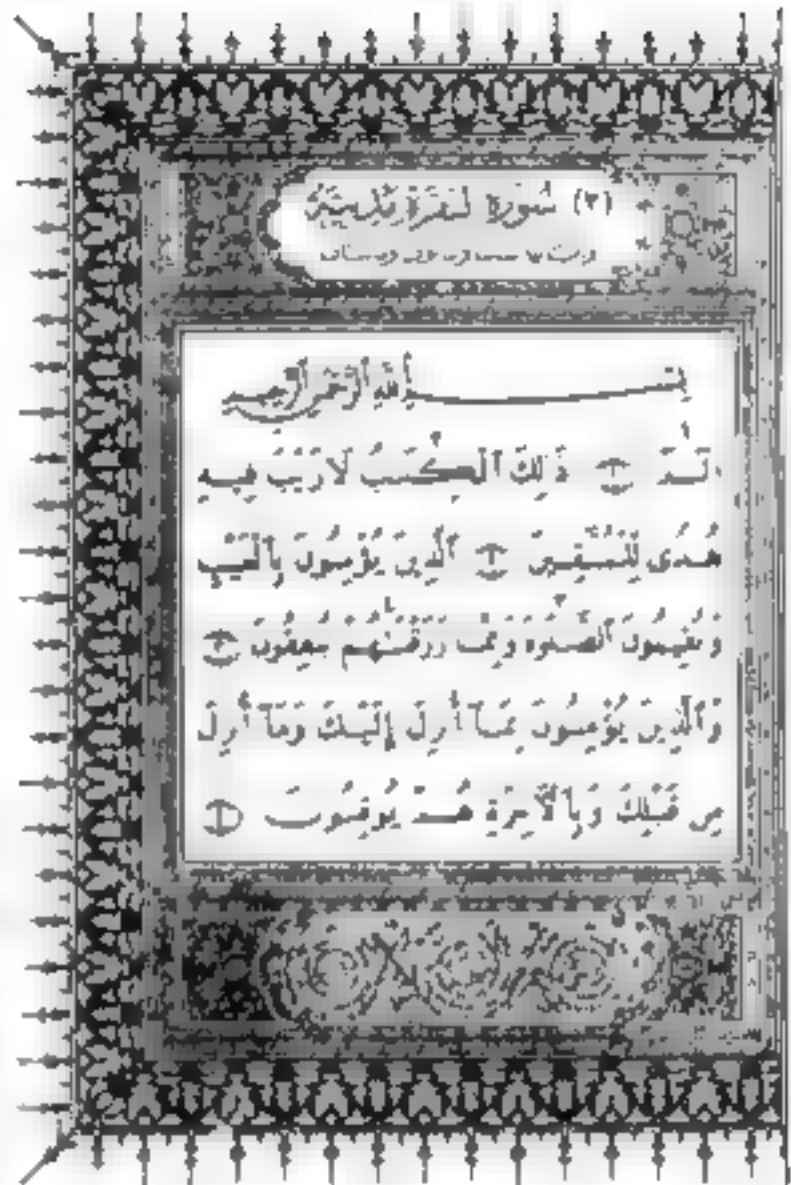 (٢) سُورَةُ البَقَرَةِ مَدَنِيَّة
بِسْمِ ٱللَّهِ ٱلرَّحْمَٰنِ ٱلرَّحِيمِ
الٓمٓ ١ ذَٰلِكَ ٱلْكِتَٰبُ لَا رَيْبَ فِيهِ
هُدًى لِّلْمُتَّقِينَ ٢ ٱلَّذِينَ يُؤْمِنُونَ بِٱلْغَيْبِ
وَيُقِيمُونَ ٱلصَّلَوٰةَ وَمِمَّا رَزَقْنَٰهُمْ يُنفِقُونَ ٣
وَٱلَّذِينَ يُؤْمِنُونَ بِمَآ أُنزِلَ إِلَيْكَ وَمَآ أُنزِلَ
مِن قَبْلِكَ وَبِٱلْأَخِرَةِ هُمْ يُوقِنُونَ ٤